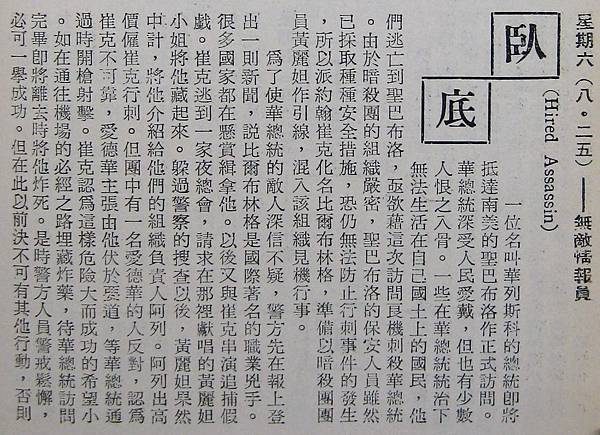 星期六（八・二五）——無敵情報員
臥底
(Hired Assassin)
一位名叫華列斯科的總統卽將
抵達南美的聖巴布洛作正式訪問。
華總統深受人民愛戴，但也有少數
人恨之入骨。一些在華總統統治下
無法生活在自己國土上的國民，他
們逃亡到聖巴布洛，亟欲藉這次訪問良機刺殺華總統
。由於暗殺團的組織嚴密，聖巴布洛的保安人員雖然
已採取種種安全措施，恐仍無法防止行刺事件的發生
，所以派約翰崔克化名比爾布林格，準備以暗殺團團
員黃麗妲作引線，混入該組織見機行事。
爲了使華總統的敵人深信不疑，警方先在報上登
出一則新聞，說比爾布林格是國際著名的職業兇手。
很多國家都在懸賞緝拿他。以後又與崔克串演追捕假
戲。崔克逃到一家夜總會，請求在那裡獻唱的黃麗妲
小姐將他藏起來。躲過警察的搜查以後，黃麗妲果然
中計，將他介紹給他們的組織負責人阿列。阿列出高
價僱崔克行刺。但團中有一名愛德華的人反對，認爲
崔克不可靠，愛德華主張由他伏於要道，等華總統通
過時開槍射擊。崔克認爲這樣危險大而成功的希望小
。如在通往機場的必經之路埋藏炸藥，待華總統訪問
完畢卽將離去時將他炸死。是時警方人員警戒鬆懈，
必可一舉成功。但在此以前決不可有其他行動，否則